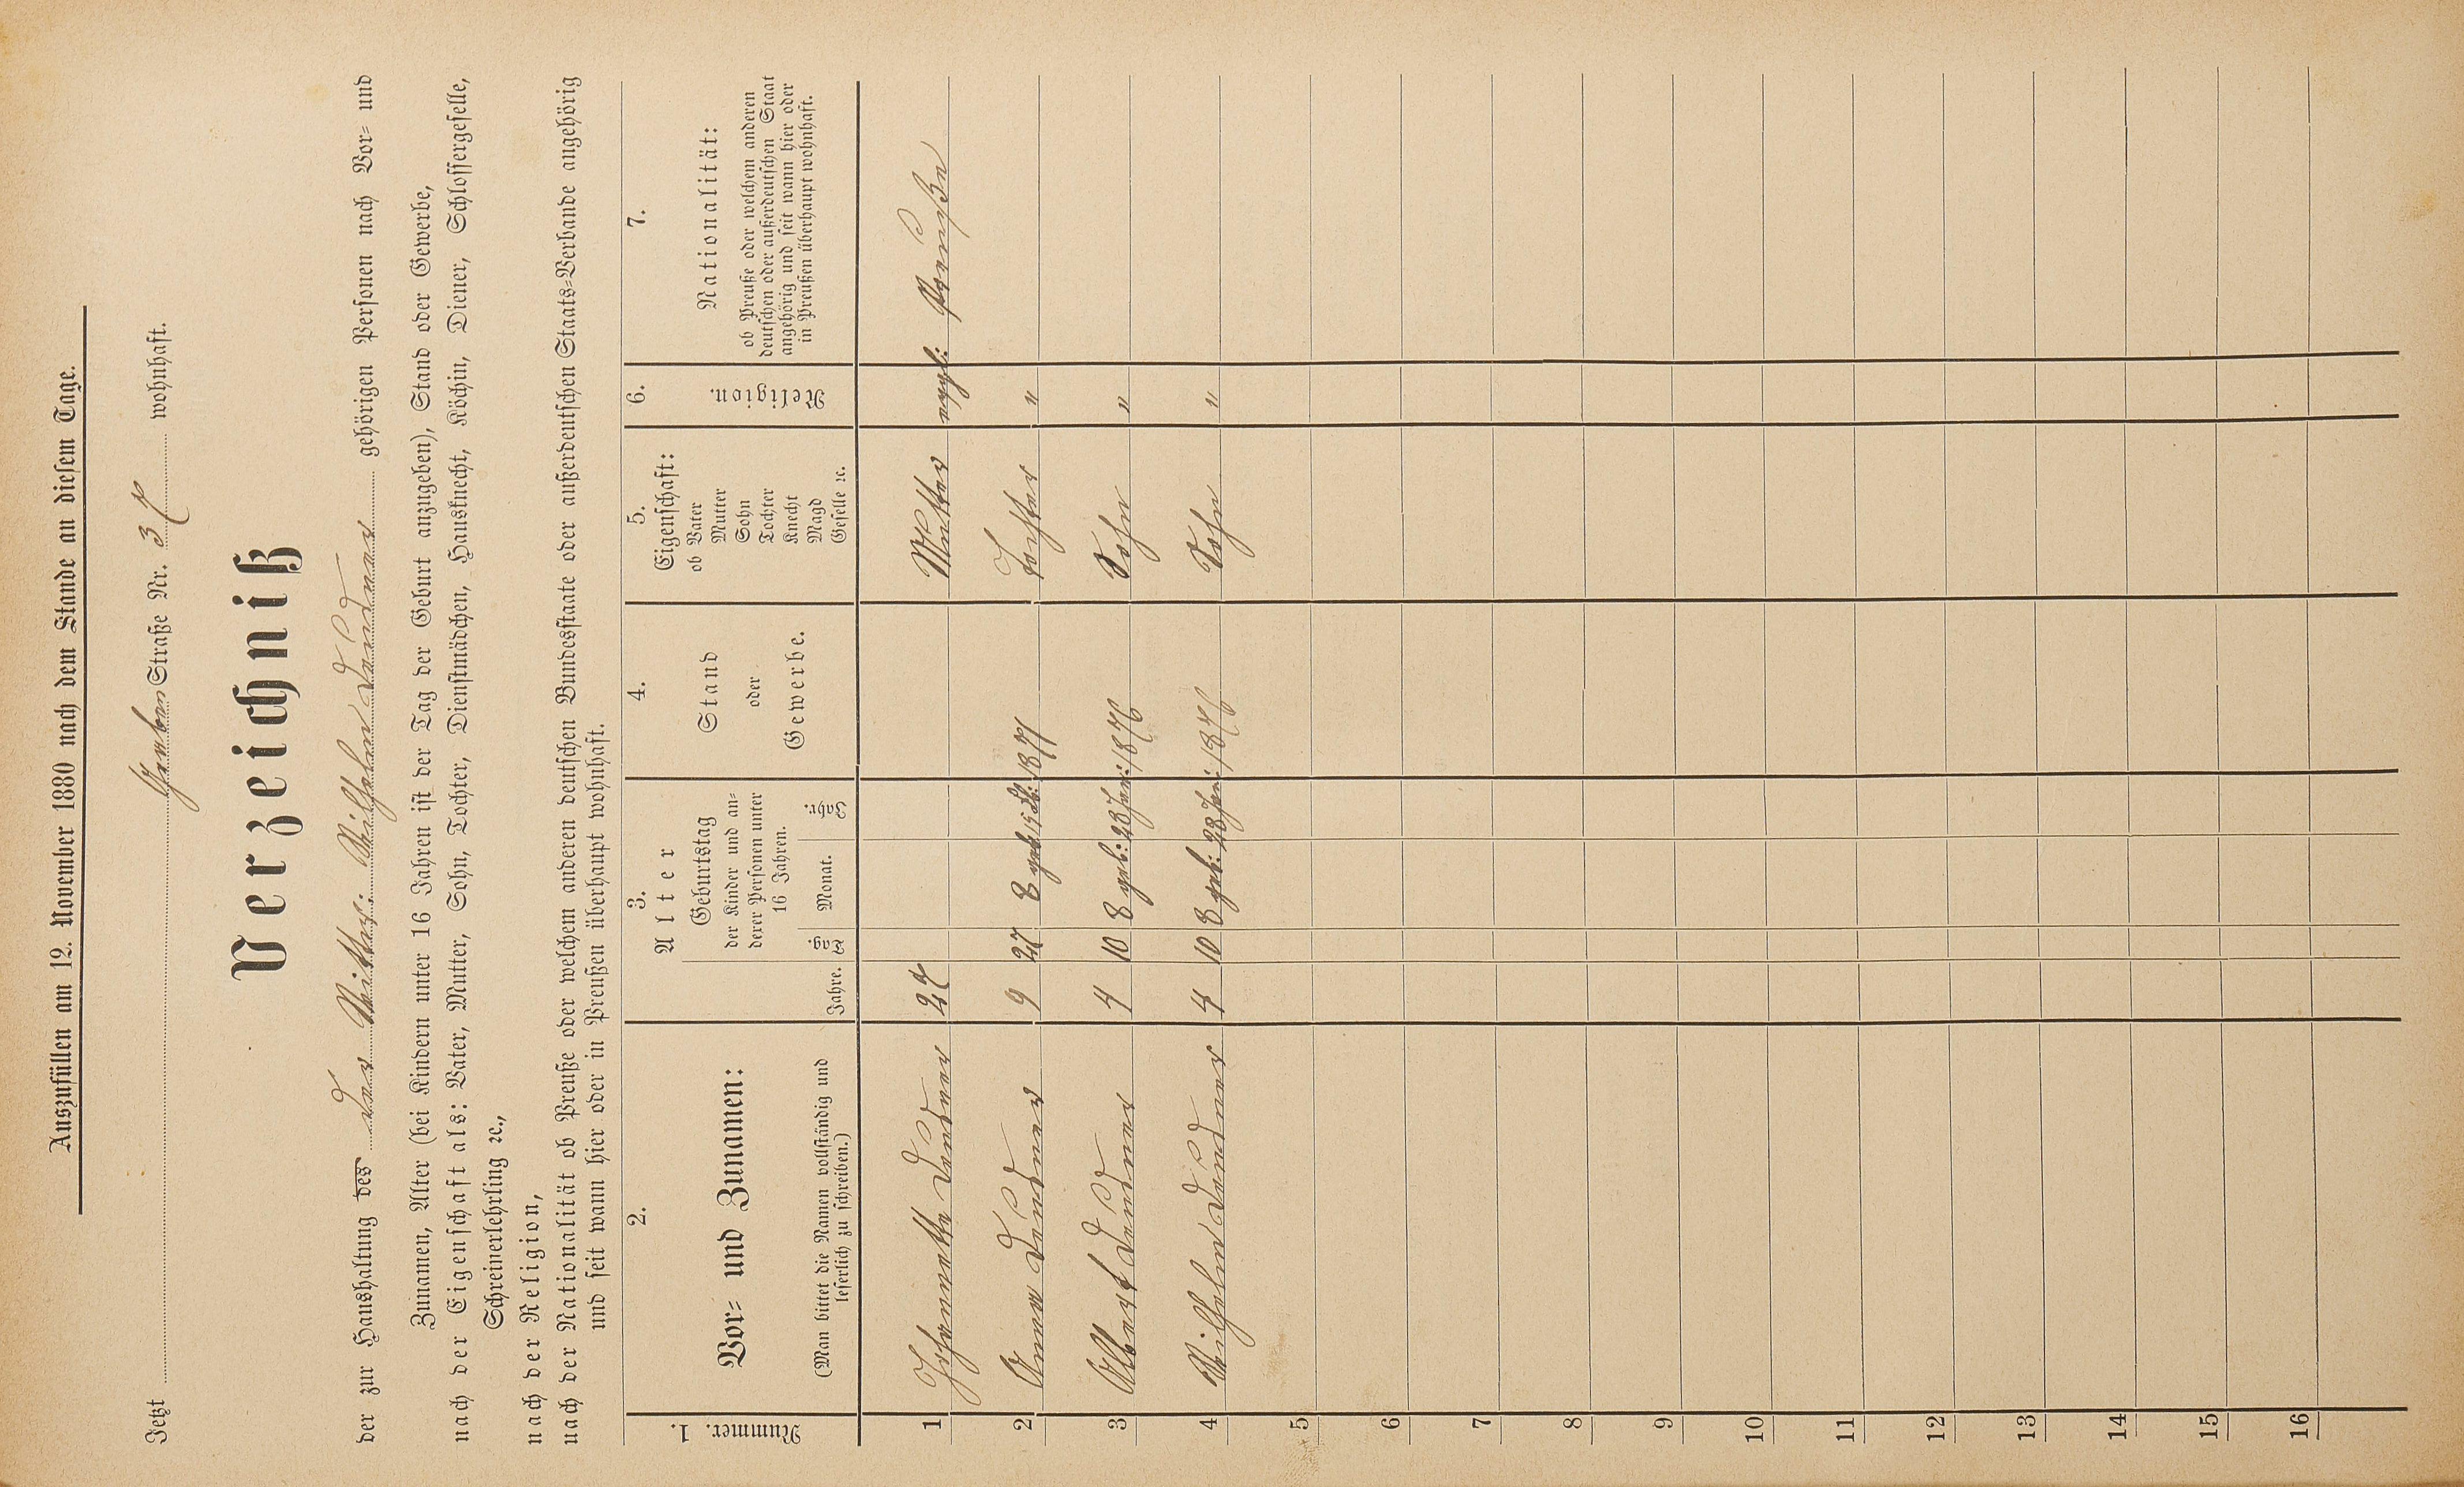 Auszufüllen am 12. November 1880 nach dem Stande an diesem Tage.
Jetzt Graben Straße Nr. 37 wohnhaft.
Verzeichniß
der zur Haushaltung des der Wittwe: Wilhelm Deudner gehörigen Personen nach Vor- und
Zunamen, Alter (bei Kindern unter 16 Jahren ist der Tag der Geburt anzugeben), Stand oder Gewerbe,
nach der Eigenschaft als: Vater, Mutter, Sohn, Tochter, Dienstmädchen, Hausknecht, Köchin, Diener, Schlossergeselle,
Schreinerlehrling ꝛc.,
nach der Religion,
nach der Nationalität ob Preuße oder welchem anderen deutschen Bundesstaate oder außerdeutschen Staats-Verbande angehörig
und seit wann hier oder in Preußen überhaupt wohnhaft.
Nummer. 1.
2.
Vor- und Zunamen:
(Man bittet die Namen vollständig und
leserlich zu schreiben.)
3.
Alter
Jahre.
Geburtstag
der Kinder und an-
derer Personen unter
16 Jahren.
Tag. Monat. Jahr.
4.
Stand
oder
Gewerbe.
5.
Eigenschaft:
ob Vater
Mutter
Sohn
Tochter
Knecht
Magd
Geselle ꝛc.
6.
Religion.
7.
Nationalität:
ob Preuße oder welchem anderen
deutschen oder außerdeutschen Staat
angehörig und seit wann hier oder
in Preußen überhaupt wohnhaft.
1 Johannette Deudner Mutter evgl: Preuße
2 Anna Deudner 9 27 8 geb. 1871 Tochter "
3 Albert Deudner 4 10 8 geb: 28 Jan: 1876 Sohn "
4 Wilhelm Deudner 4 10 8 geb: 28 Jan: 1876 Sohn "
5
6
7
8
9
10
11
12
13
14
15
16